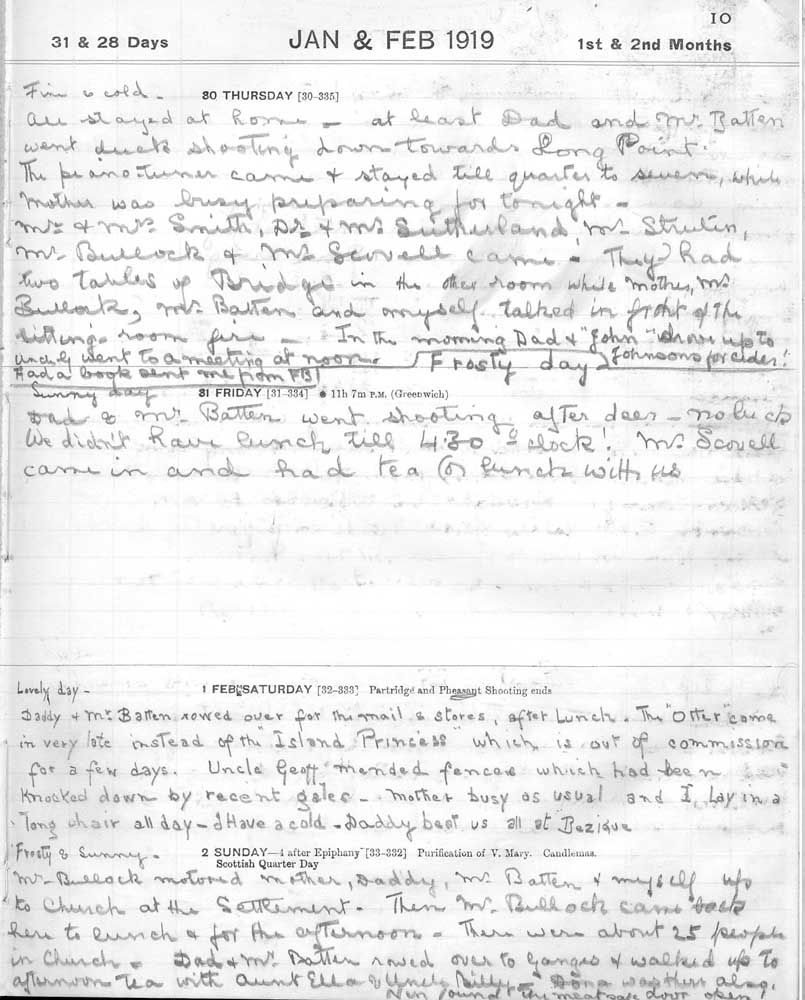 10
31 & 28 Days JAN & FEB 1919 1st & 2nd Months
Fine & cold - 30 THURSDAY [30-335]
All stayed at home - at least Dad and Mr. Batten
went duck shooting down towards Long Point.
The piano-tuner came & stayed till quarter to seven, while
Mother was busy preparing for tonight -
Mr & Mrs Smith, Dr & Mrs Sutherland, Mr.
Mr. Bullock & Mr Scovell came - They had
two tables of Bridge in the other room while Mother, Mr.
Bullock, Mr. Batten and myself talked in front of the
sitting room fire - In the morning Dad & "John" drove up to
Johnsons for cider!
Uncly went to a meeting at noon. Frosty day
Had a book sent me from FB
Sunny day 31 FRIDAY [31-334] ● 11h 7m P.M. (Greenwich)
Dad & Mr. Batten went shooting after deer - no luck
We didn't have lunch till 4.30 o'clock! Mr. Scovell
came in and had tea (or lunch with us
Lovely day - 1 FEB. SATURDAY [32-333] Partridge and Pheasant Shooting ends
Daddy & Mr. Batten rowed over for the mail & stores, after Lunch. The "Otter" came
in very late instead of the "Island Princess" which is out of commission
for a few days. Uncle Geoff mended fences which had been
knocked down by recent gales - Mother busy as usual and I lay in a
long chair all day - I Have a cold - Daddy beat us all at Bezique
Frosty & Sunny - 2 SUNDAY—4 after Epiphany [33-332] Purification of V. Mary. Candlemas.
Scottish Quarter Day
Mr. Bullock motored Mother, Daddy, Mr. Batten & myself up
to Church at the Settlement. Then Mr. Bullock came back
here to lunch & for the afternoon - There were about 25 people
in Church - Dad & Mr. Batten rowed over to Ganges & walked up to
afternoon tea with Aunt Ella & Uncle Billy - was there also.
found the meat safe door